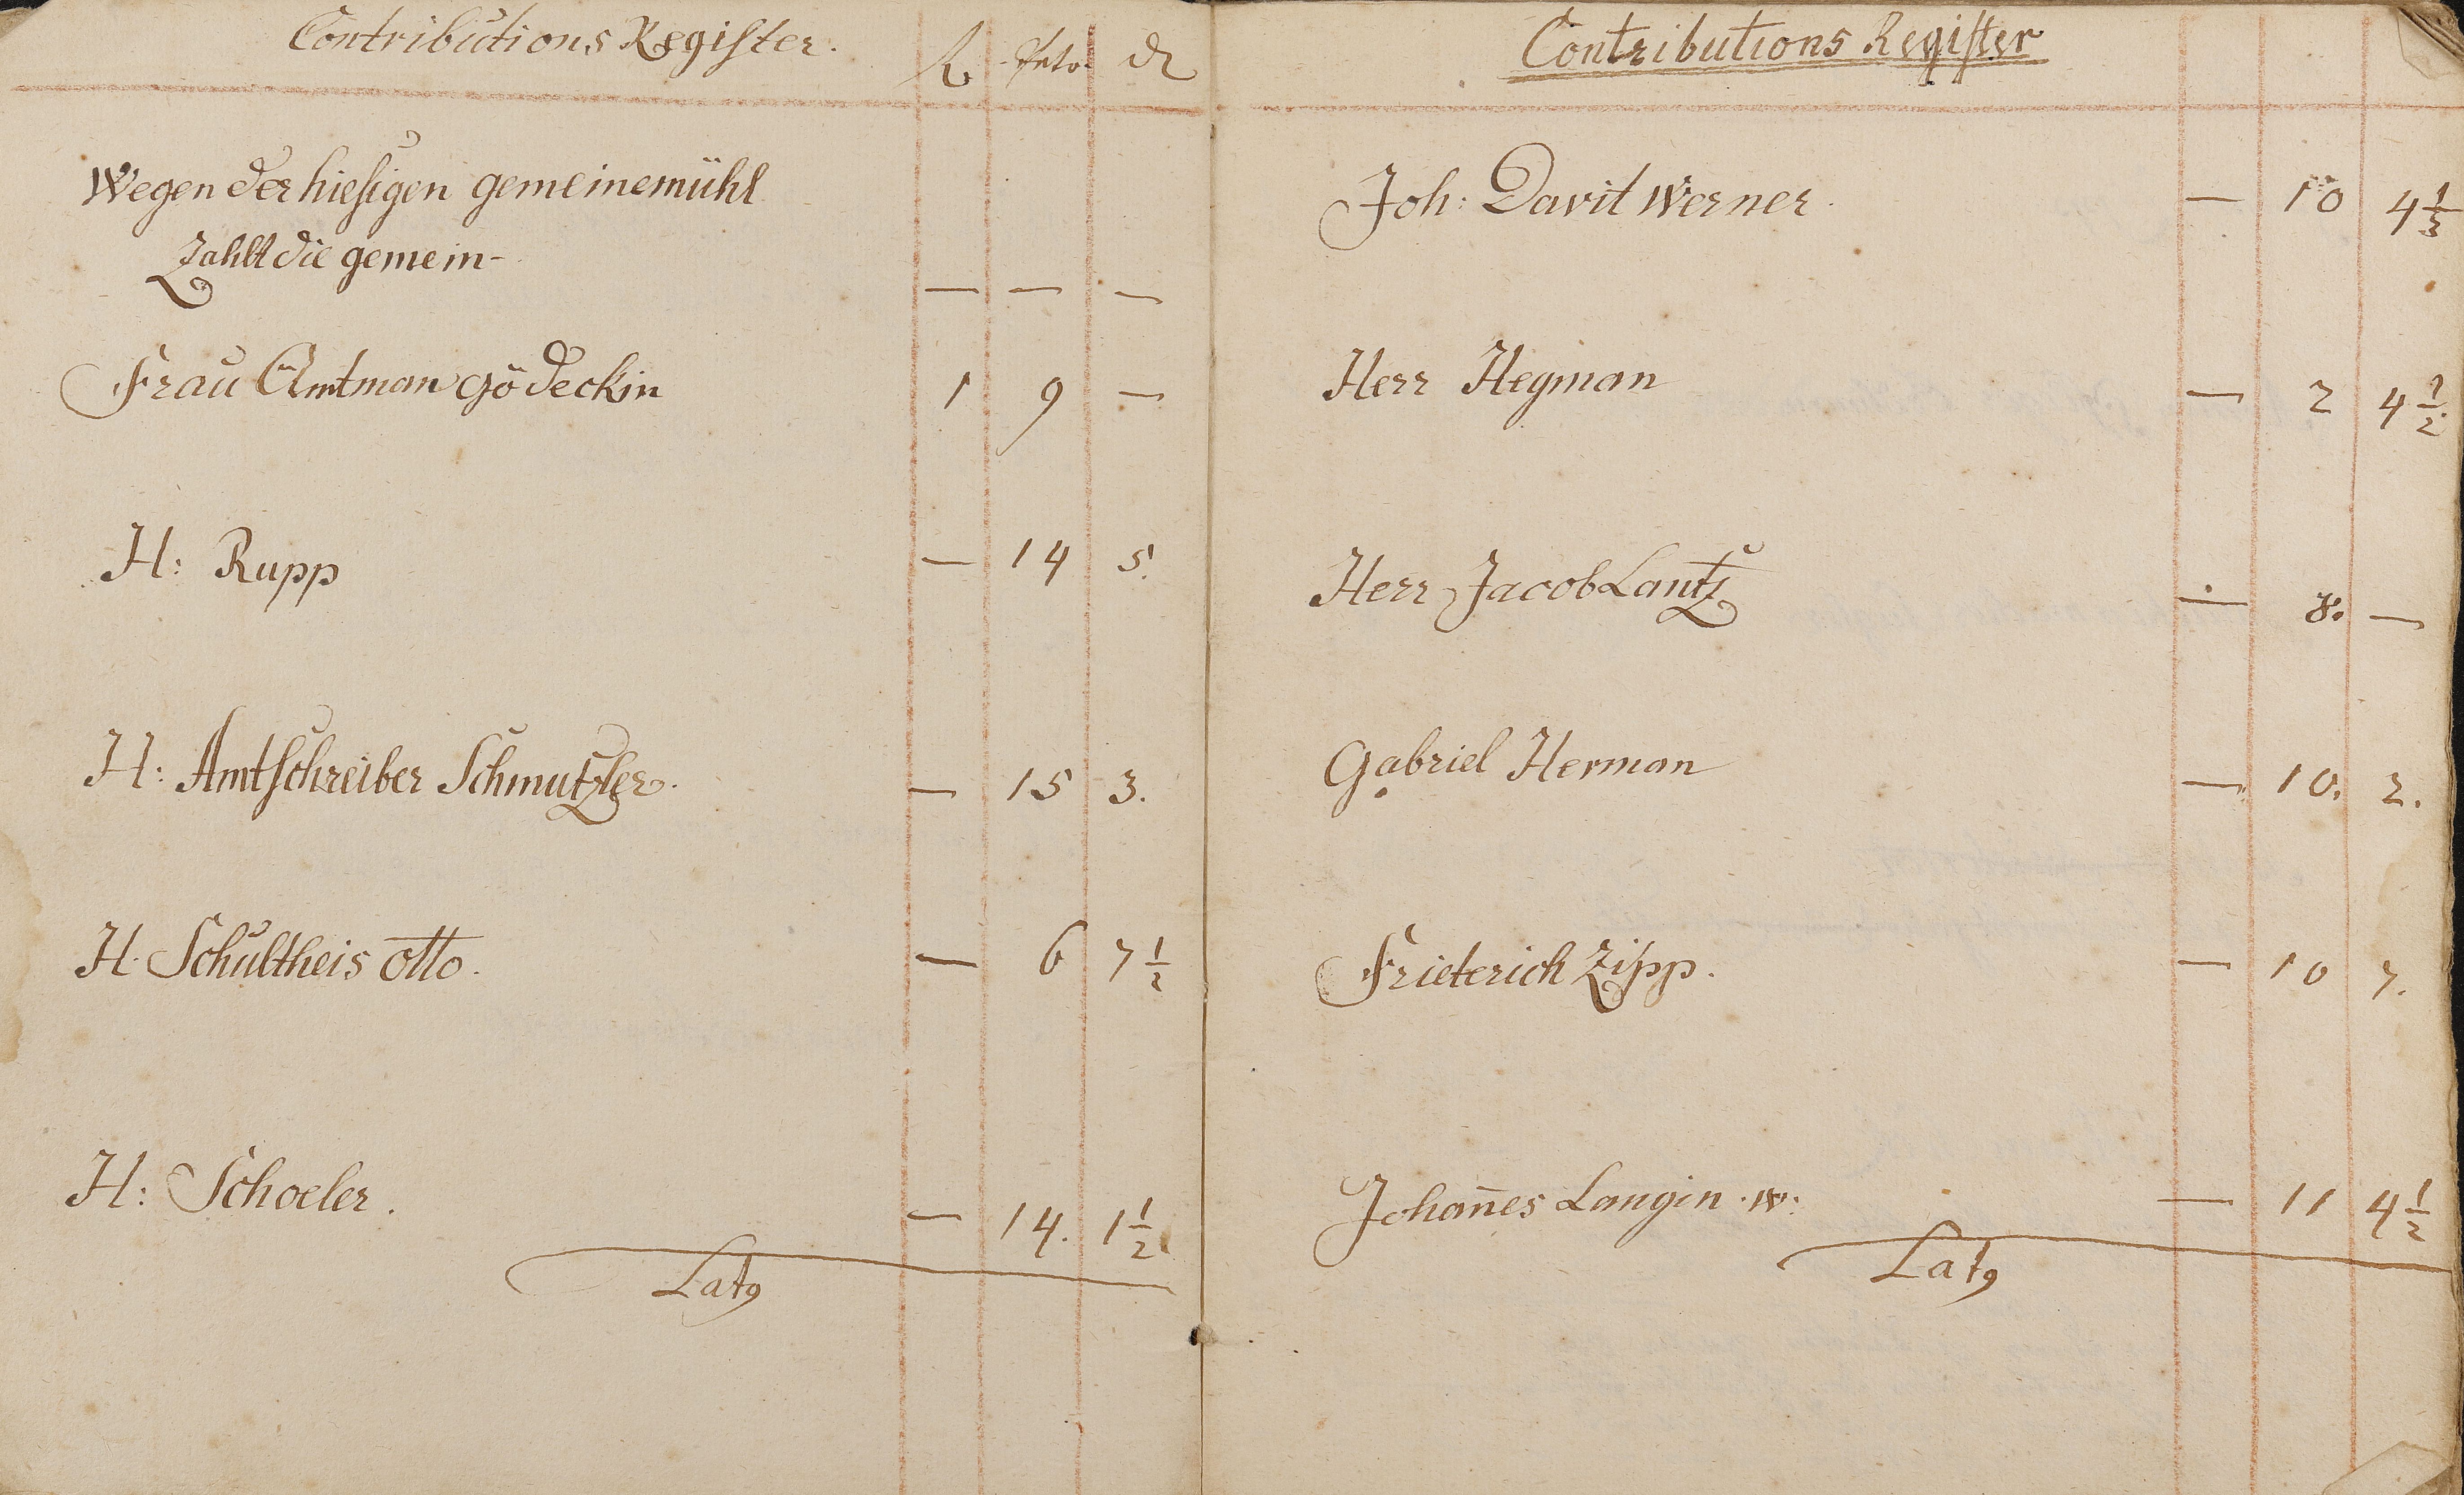 Contributions Register.
Wegen der hiesigen gemeinemühl
Zahlt die gemein - — — —
Frau Amtman gödeckin 1 9 —
H: Rupp — 14 5.
H: Amtschreiber Schmutzler. — 15 3.
H. Schultheis otto. — 6 7 1/2
H: Schoeler. — 14. 1 1/2
Latq
Contributions Register
Joh: Davit Werner. — 10 4 1/3
Herr Hegman — 2 4 1/2
Herr Jacob Lantz — 8. —
Gabriel Herman — 10. 2.
Frieterich Zipp. — 10 7.
Johañes Langin. w: — 11 4 1/2
Latq